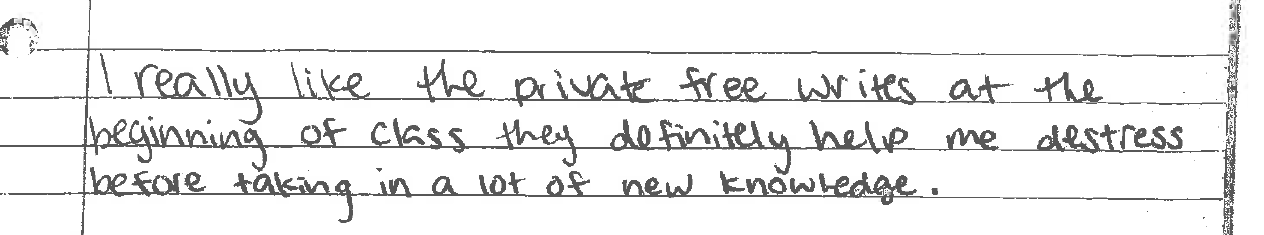 I really like the private free writes at the
beginning of class they definitely help me destress
before taking in a lot of new knowledge.